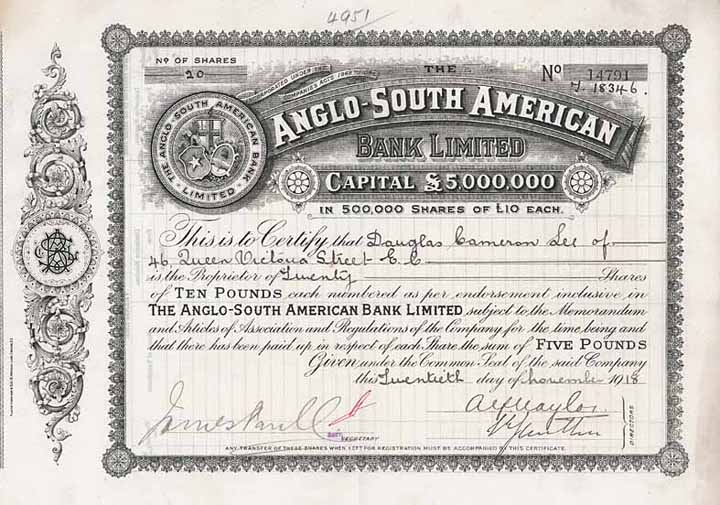 4951
No OF SHARES
20
INCORPORATED UNDER THE
COMPANIES ACTS 1862
THE
No 14791
T. 18346.
ANGLO-SOUTH AMERICAN
BANK LIMITED
THE ANGLO-SOUTH AMERICAN BANK
LIMITED
CAPITAL £5,000,000
IN 500,000 SHARES OF £10 EACH.
This is to Certify, that Douglas Cameron Lee of
46, Queen Victoria Street E.C.
is the Proprietor of Twenty Shares
of TEN POUNDS each numbered as per endorsement inclusive in
THE ANGLO-SOUTH AMERICAN BANK LIMITED subject to the Memorandum
and Articles of Association and Regulations of the Company for the time being and
that there has been paid up in respect of each Share the sum of FIVE POUNDS
Given under the Common Seal of the said Company
this Twentieth day of November 1918
SECRETARY
DIRECTORS
ANY TRANSFER OF THESE SHARES WHEN LEFT FOR REGISTRATION MUST BE ACCOMPANIED BY THIS CERTIFICATE.